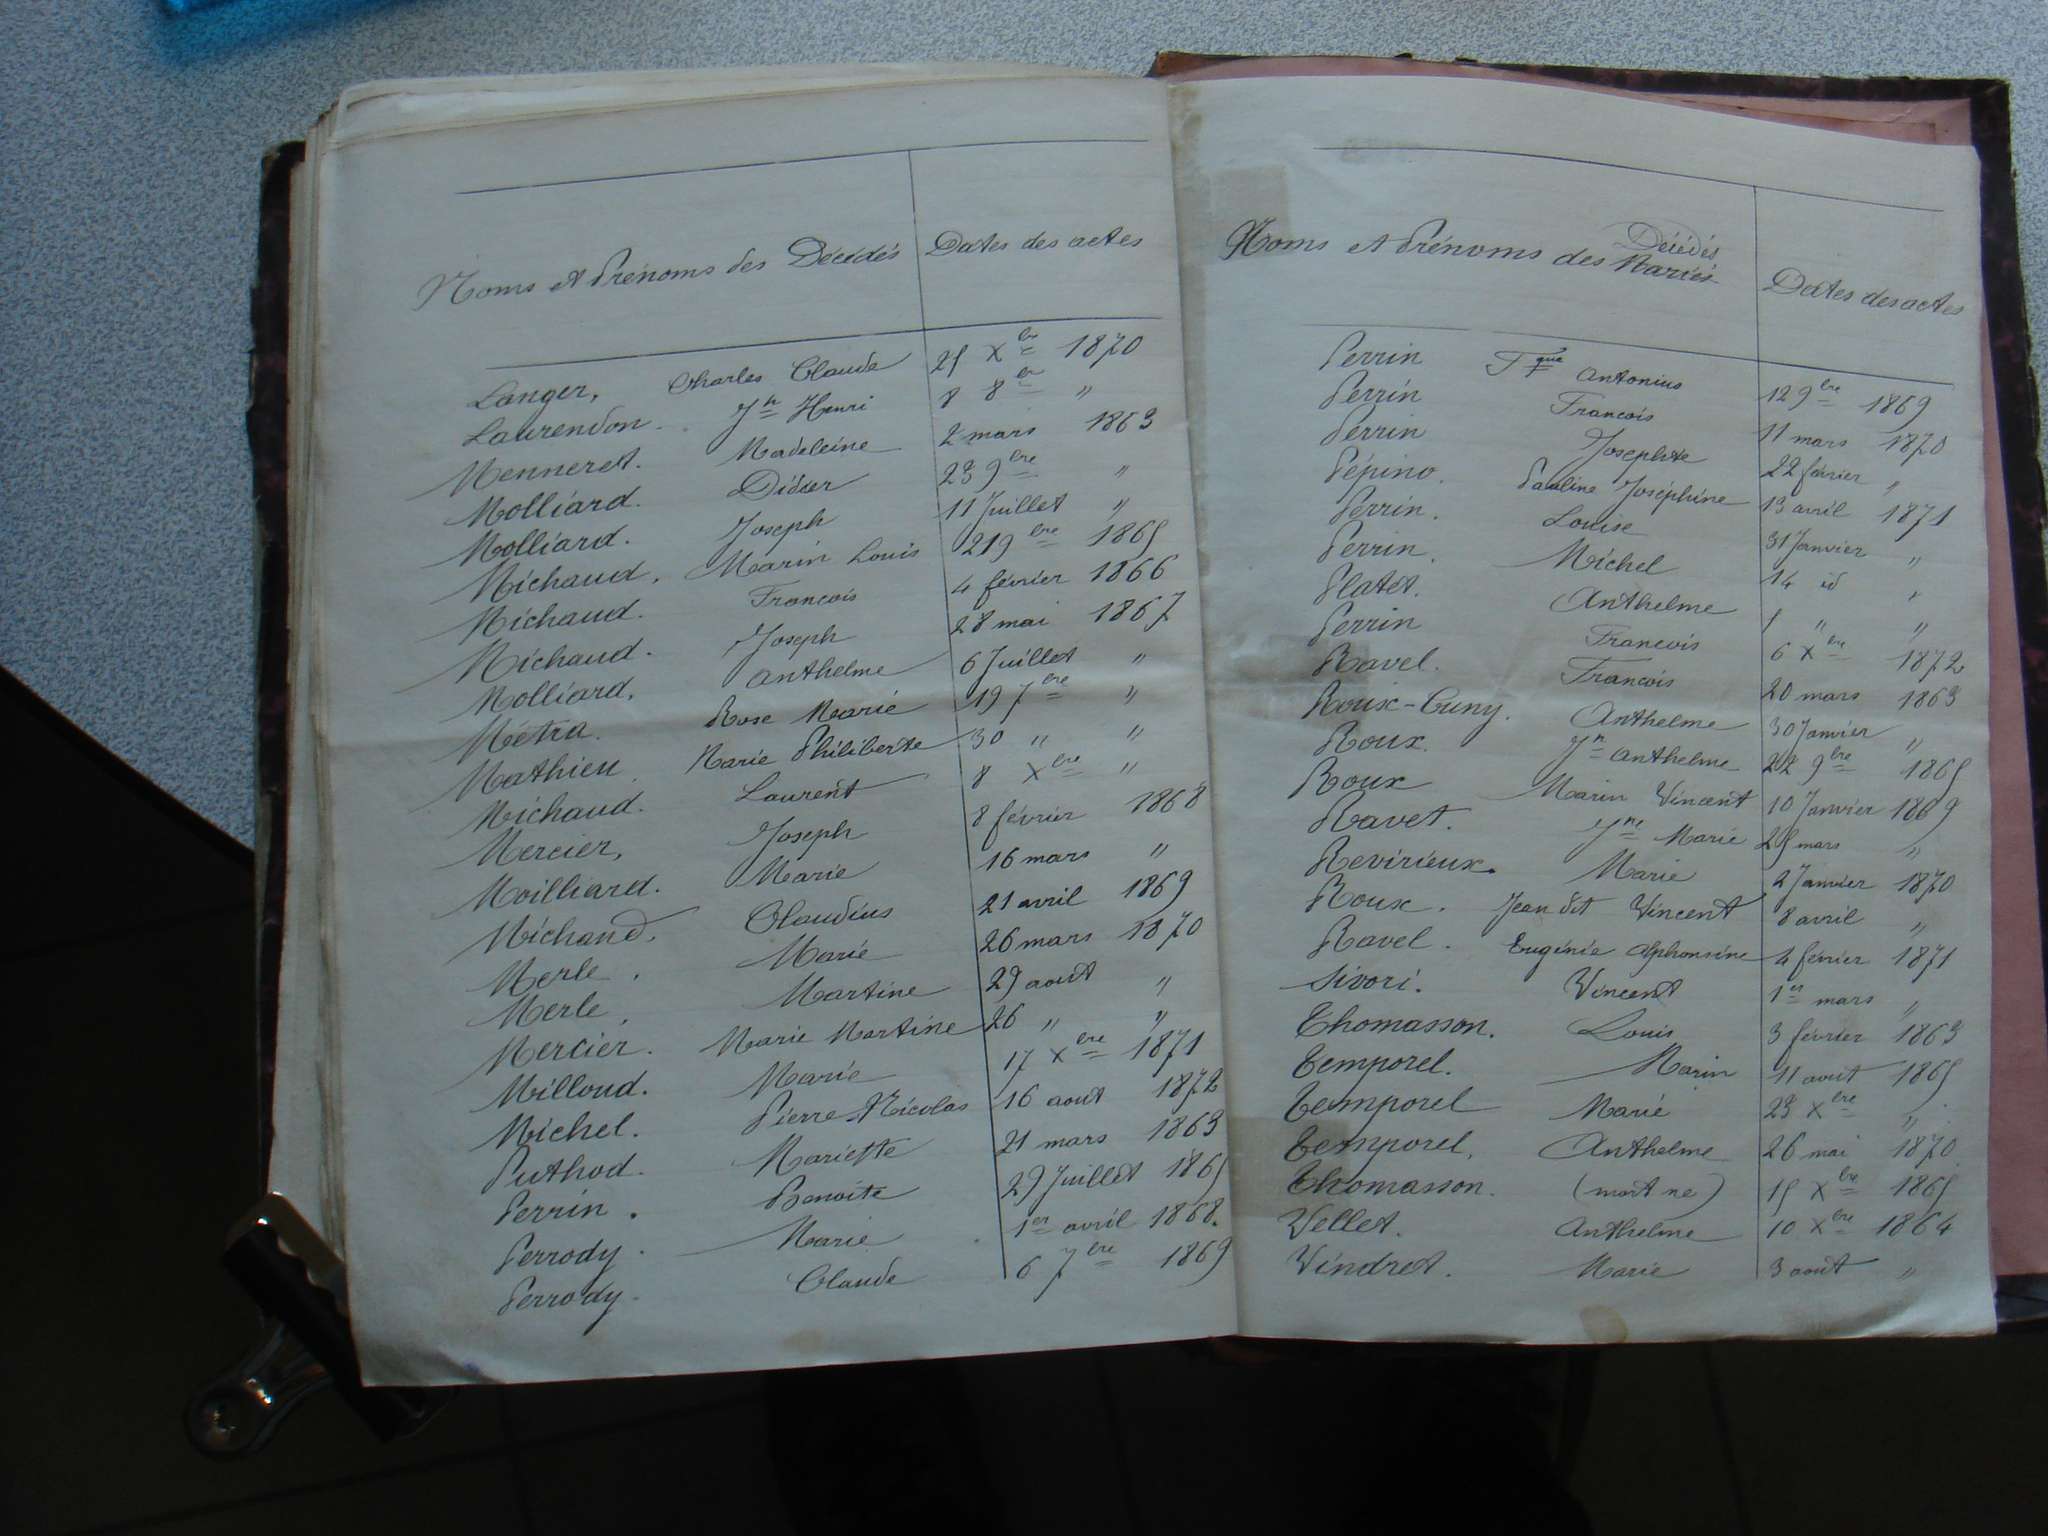 Noms et Prénoms des Décédés Dates des actes
Langer, Charles Claude 25 Xbre 1870
Laurendon. Jh Henri 8 8bre "
Menneret. Madeleine 2 mars 1863
Molliard. Didier 23 9bre "
Molliard. Joseph 11 Juillet "
Michaud, Marin Louis 21 9bre 1865
Michaud. François 4 février 1866
Michaud. Joseph 28 mai 1867
Molliard, Anthelme 6 Juillet "
Métra. Rose Marie 19 7bre "
Mathieu. Marie Philiberte 30 " "
Michaud. Laurent 8 Xbre "
Mercier, Joseph 8 février 1868
Moilliard. Marie 16 mars "
Michaud, Claudius 21 avril 1869
Merle, Marie 26 mars 1870
Merle, Martine 29 aout "
Mercier. Marie Martine 26 " "
Milloud. Marie 17 Xbre 1871
Michel. Pierre Nicolas 16 aout 1872
Puthod. Mariette 21 mars 1863
Perrin. Benoite 29 Juillet 1865
Perrody. Marie 1er avril 1868.
Perrody. Claude 6 7bre 1869
Noms et Prénoms des Mariés Décédés Dates des actes
Perrin Fque Antonius 12 9bre 1869
Perrin François 11 mars 1870
Perrin Josephte 22 février "
Pépino. Pauline Joséphine 13 avril 1871
Perrin. Louise 31 Janvier "
Perrin. Michel 14 id "
Platet. Anthelme 1 " "
Perrin Francois 6 Xbre 1872
Ravel. Francois 20 mars 1863
Roux-Cuny. Anthelme 30 Janvier "
Roux. Jn Anthelme 22 9bre 1865
Roux Marin Vincent 10 Janvier 1869
Ravet. Jne Marie 25 mars "
Revirieux. Marie 2 Janvier 1870
Roux. Jean dit Vincent 8 avril "
Ravel. Eugénie Alphonsine 4 février 1871
Sivori. Vincent 1er mars "
Thomasson. Louis 3 février 1863
Temporel. Marin 11 aout 1865
Temporel Marie 23 Xbre "
Temporel, Anthelme 26 mai 1870
Thomasson. (mort né) 15 Xbre 1865
Vellet. Anthelme 10 Xbre 1864
Vindret. Marie 3 août "